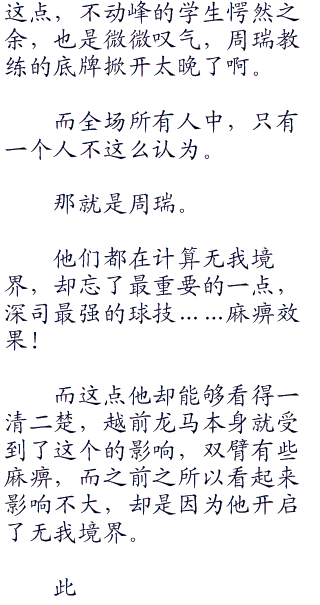 这点，不动峰的学生愕然之
余，也是微微叹气，周瑞教
练的底牌掀开太晚了啊。
而全场所有人中，只有
一个人不这么认为。
那就是周瑞。
他们都在计算无我境
界，却忘了最重要的一点，
深司最强的球技……麻痹效
果！
而这点他却能够看得一
清二楚，越前龙马本身就受
到了这个的影响，双臂有些
麻痹，而之前之所以看起来
影响不大，却是因为他开启
了无我境界。
此